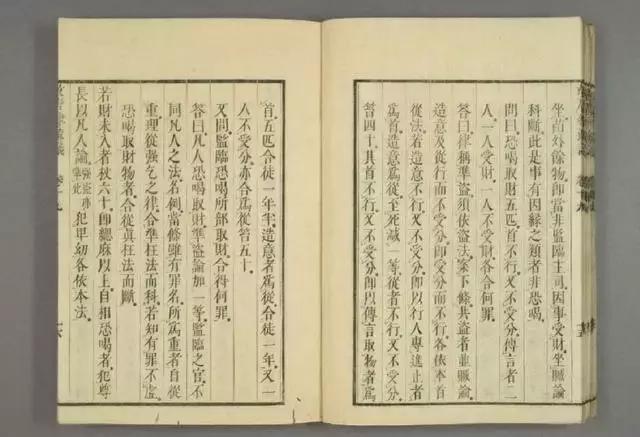 坐苗外餘物即當非監臨主司因事受財坐贓論
科斷此是事有因緣之類者非恐喝
問曰恐喝取財五匹首不行又不受分傳言者二
人一人受財一人不受財各合何罪
答曰律稱準盜須依盜法案下條共盜者並贓論
造意及從行而不受分即受分而不行各依本首
從法若造意不行又不受分即以行人專進止者
爲首造意爲從至死減一等從者不行又不受分
笞四十其首不行又不受分即以傳言取物者爲
首五匹合徒一年半造意者爲從合徒一年又一
人不受分亦合爲從笞五十
又問監臨恐喝所部取財合得何罪
答曰凡人恐喝取財準盜論加一等監臨之官不
同凡人之法名例當條雖有罪名所爲重者自從
重理從強乞之律合準枉法而科若知有罪不虛
恐喝取財物者合從眞枉法而斷
若財未入者杖六十即緦麻以上自相恐喝者犯尊
長以凡人論強盜亦準此犯卑幼各依本法